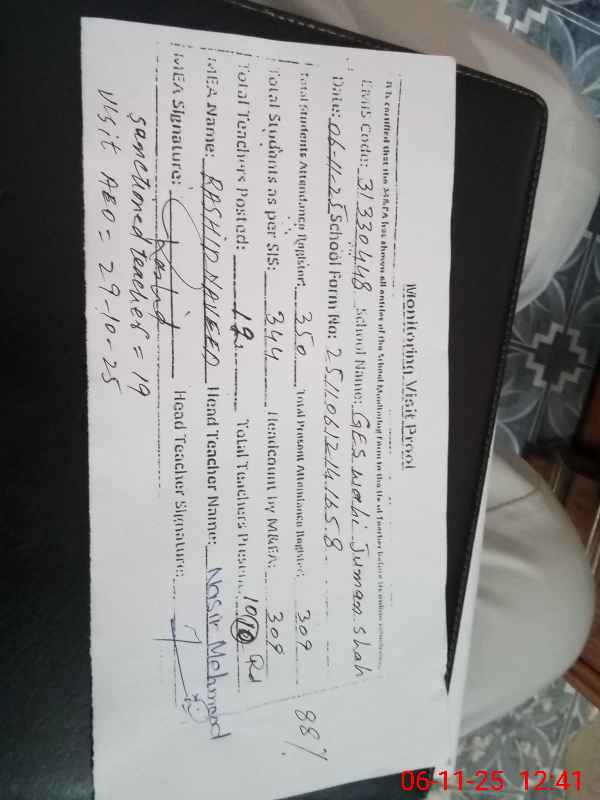 Monitoring Visit Proof
It is certified that the M&EA has shown all entries of the School Monitoring Form to the Head Teacher before its online submission.
EMIS Code: 31330448 School Name: GES Wahi Juman Shah
Date: 06-11-25 School Form No: 25.11.06.12.14.165.8
Total Students Attendance Register: 350 Total Present Attendance Register: 309
Total Students as per SIS: 344 Headcount by M&EA: 309 88%
Total Teachers Posted: 12 Total Teachers Present: 10
MEA Name: RASHID NAVEED Head Teacher Name: Nasir Mehmood
MEA Signature: Head Teacher Signature:
Sanctioned teacher = 19
Visit AEO = 29-10-25
06-11-25 12:41